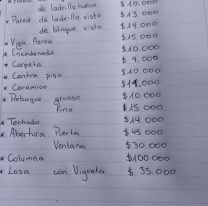 de ladrillo hueco $10.000
* Pared de ladrillo visto $13.000
de bloque visto $14.000
* Viga Aerea $15.000
* Encadenado $10.000
* Carpeta $ 9.000
* Contra piso $10.000
* Ceramico
* Reboque grueso $10.000
fino $15.000
* Techado $14.000
* Abertura Puerta $45.000
Ventana $30.000
* Columna $100.000
* Losa con Vigueta $ 35.000